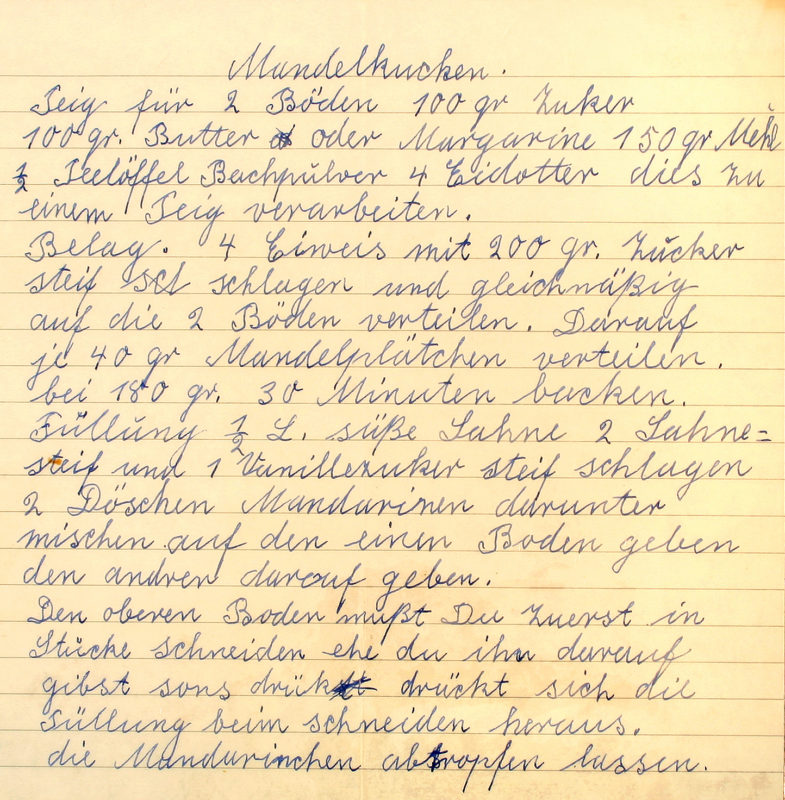 Mandelkuchen.
Teig für 2 Böden 100 gr Zuker
100 gr. Butter oder Margarine 150 gr Mehl
½ Teelöffel Bachpulver 4 Eidotter dies zu
einem Teig verarbeiten.
Belag. 4 Eiweis mit 200 gr. Zucker
steif schlagen und gleichmäßig
auf die 2 Böden verteilen. Darauf
je 40 gr Mandelplätchen verteilen.
bei 180 gr. 30 Minuten backen.
Füllung ½ L. süße Sahne 2 Sahne=
steif und 1 Vanillezuker steif schlagen
2 Döschen Mandarinen darunter
mischen auf den einen Boden geben
den andren darauf geben.
Den oberen Boden mußt Du zuerst in
Stücke schneiden ehe du ihn darauf
gibst sons drückt sich die
Füllung beim schneiden heraus.
die Mandarinchen abtropfen lassen.